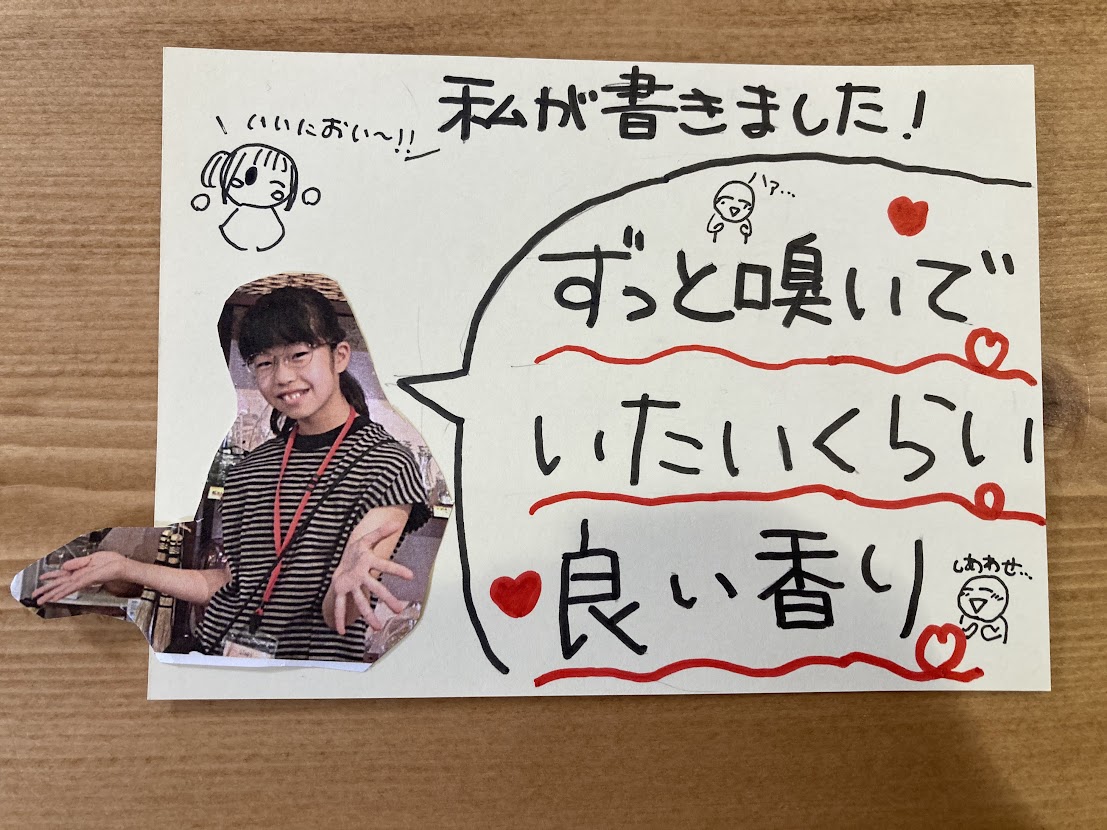 私が書きました!
いいにおい〜!!
ハァ…
ずっと嗅いで
いたいくらい
良い香り
しあわせ…